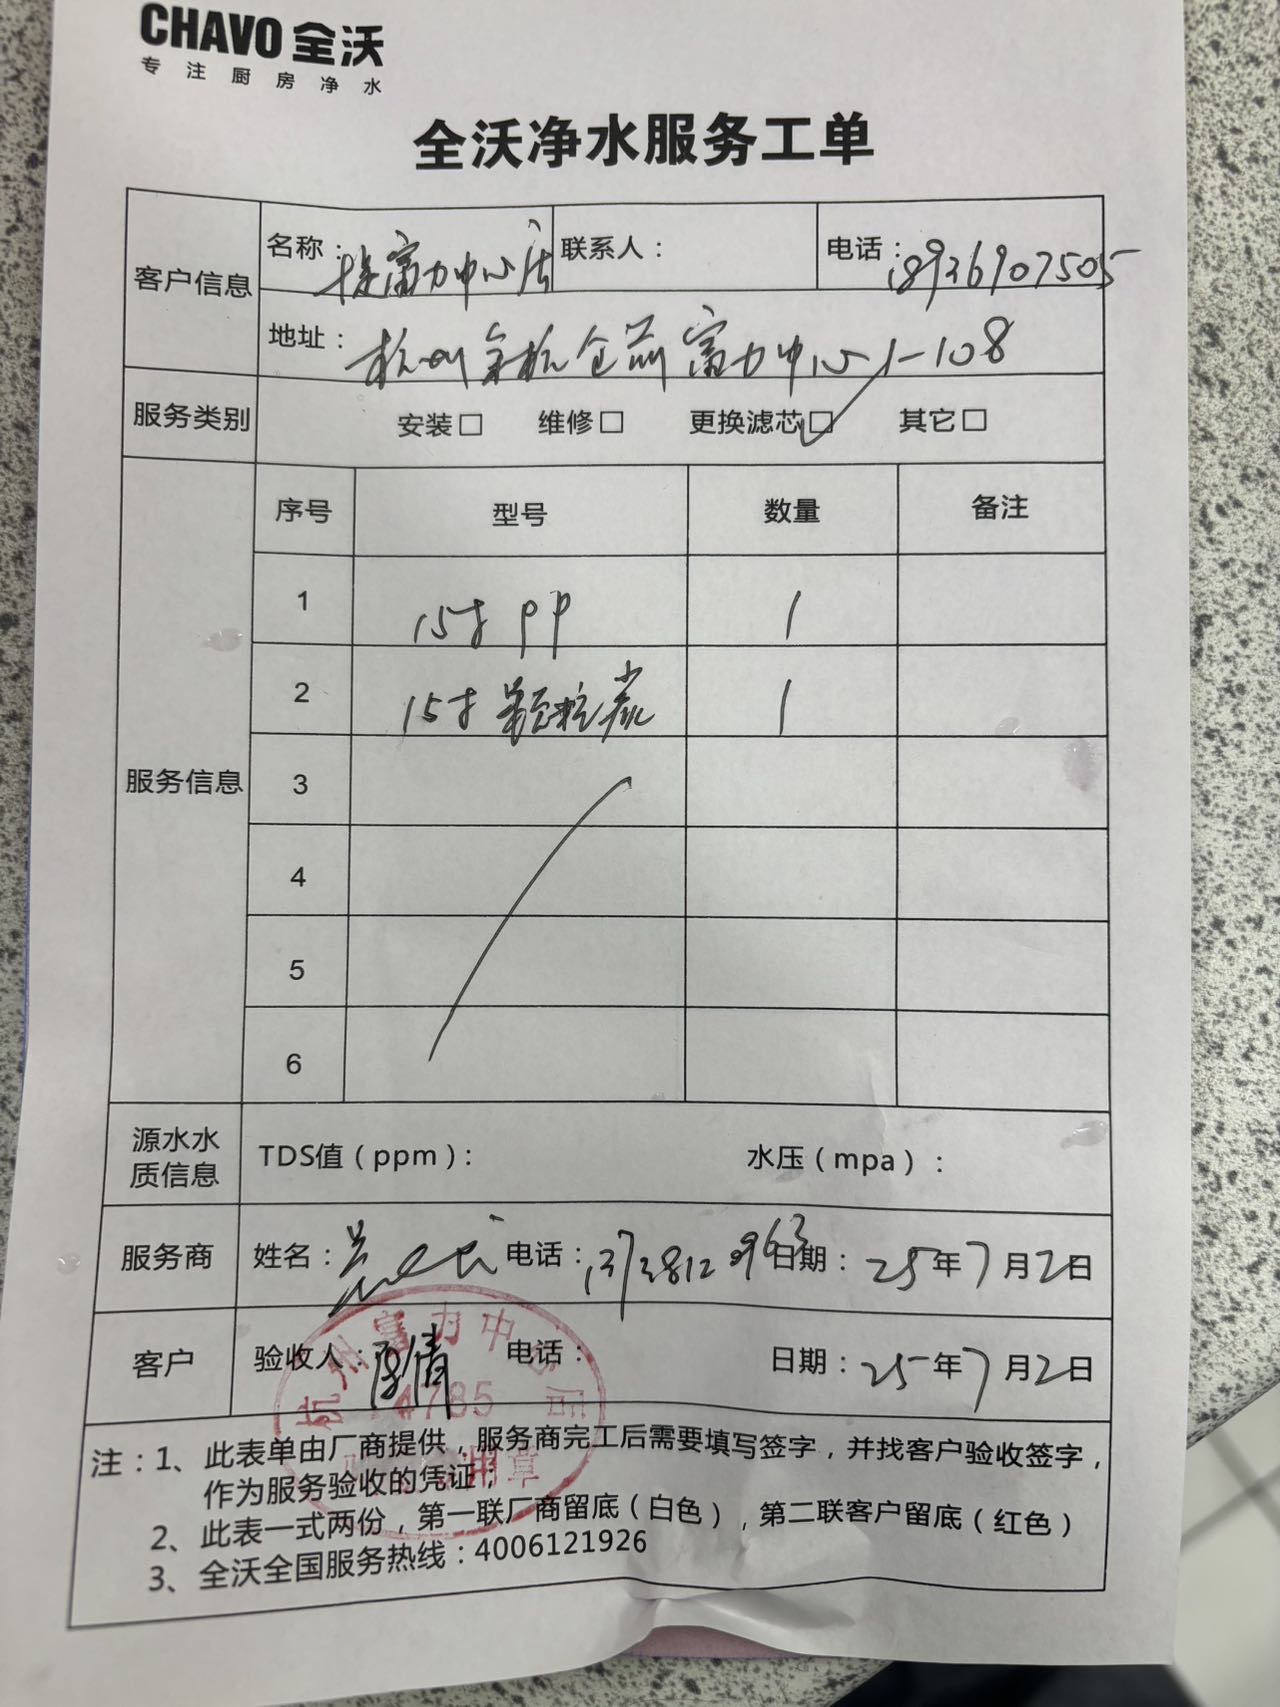 CHAVO 全沃
专注厨房净水
全沃净水服务工单
客户信息
名称： 富力中心店 联系人： 电话：18936907505
地址：杭州余杭仓前富力中心1-108
服务类别 安装□ 维修□ 更换滤芯□✓ 其它□
服务信息
序号 型号 数量 备注
1 15寸PP 1
2 15寸颗粒炭 1
3
4
5
6
源水水质信息 TDS值（ppm）： 水压（mpa）：
服务商 姓名： 电话： 日期：25年7月2日
客户 验收人： 电话： 日期：25年7月2日
杭州富力中心店
4785
用章
注：1、此表单由厂商提供，服务商完工后需要填写签字，并找客户验收签字，
作为服务验收的凭证；
2、此表一式两份，第一联厂商留底（白色），第二联客户留底（红色）
3、全沃全国服务热线：4006121926